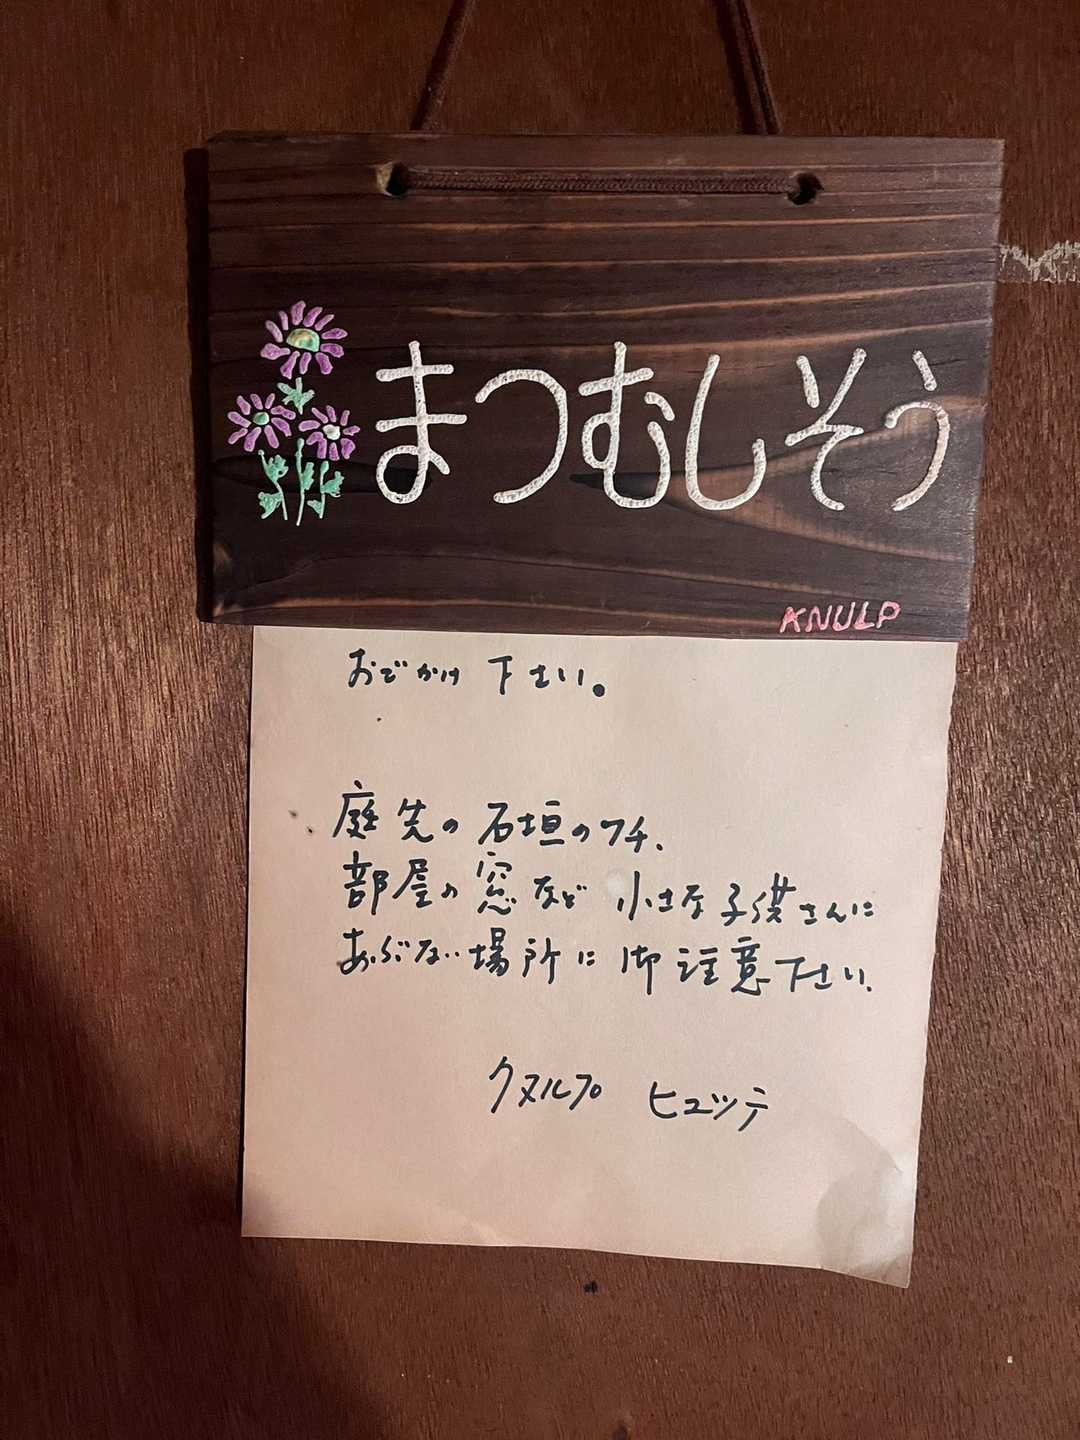 まつむしそう
KNULP
おでかけ 下さい。
庭先の石垣のフチ、
部屋の窓など 小さな子供さんに
あぶない場所に 御注意下さい、
クヌルプ ヒュッテ